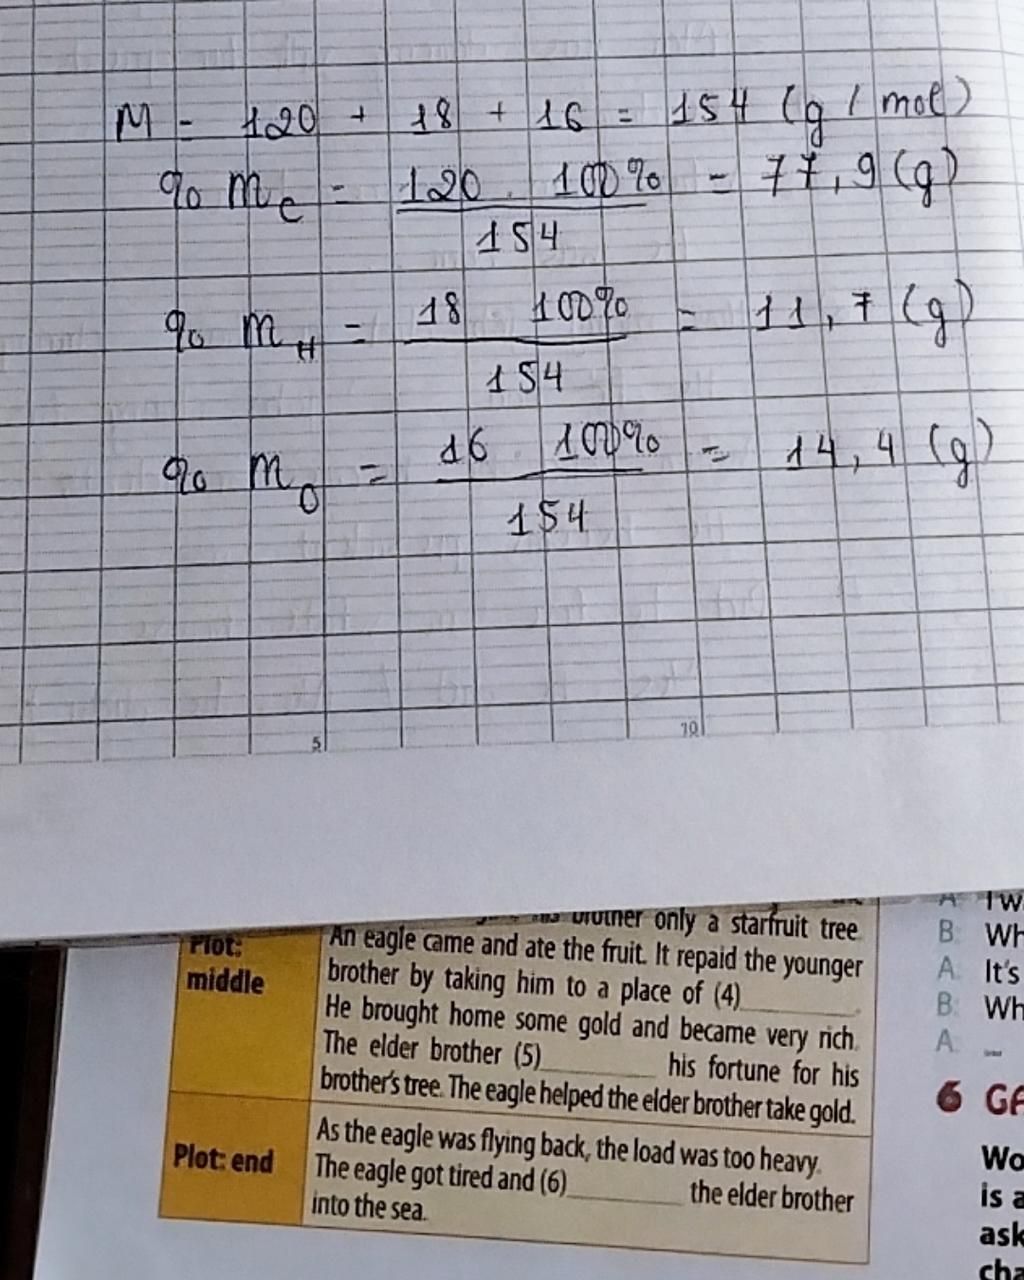 M = 120 + 18 + 16 = 154 (g / mol)
% m_C = 120 . 100% / 154 = 77,9 (g)
% m_H = 18 100% / 154 = 11,7 (g)
% m_O = 16 . 100% / 154 = 14,4 (g)
5 10
brother only a starfruit tree
Plot: middle
An eagle came and ate the fruit. It repaid the younger
brother by taking him to a place of (4)__________.
He brought home some gold and became very rich.
The elder brother (5)__________ his fortune for his
brother's tree. The eagle helped the elder brother take gold.
Plot: end
As the eagle was flying back, the load was too heavy.
The eagle got tired and (6)__________ the elder brother
into the sea.
A: I w
B: Wh
A: It's
B: Wh
A: _
6 GA
Wo
is a
ask
cha